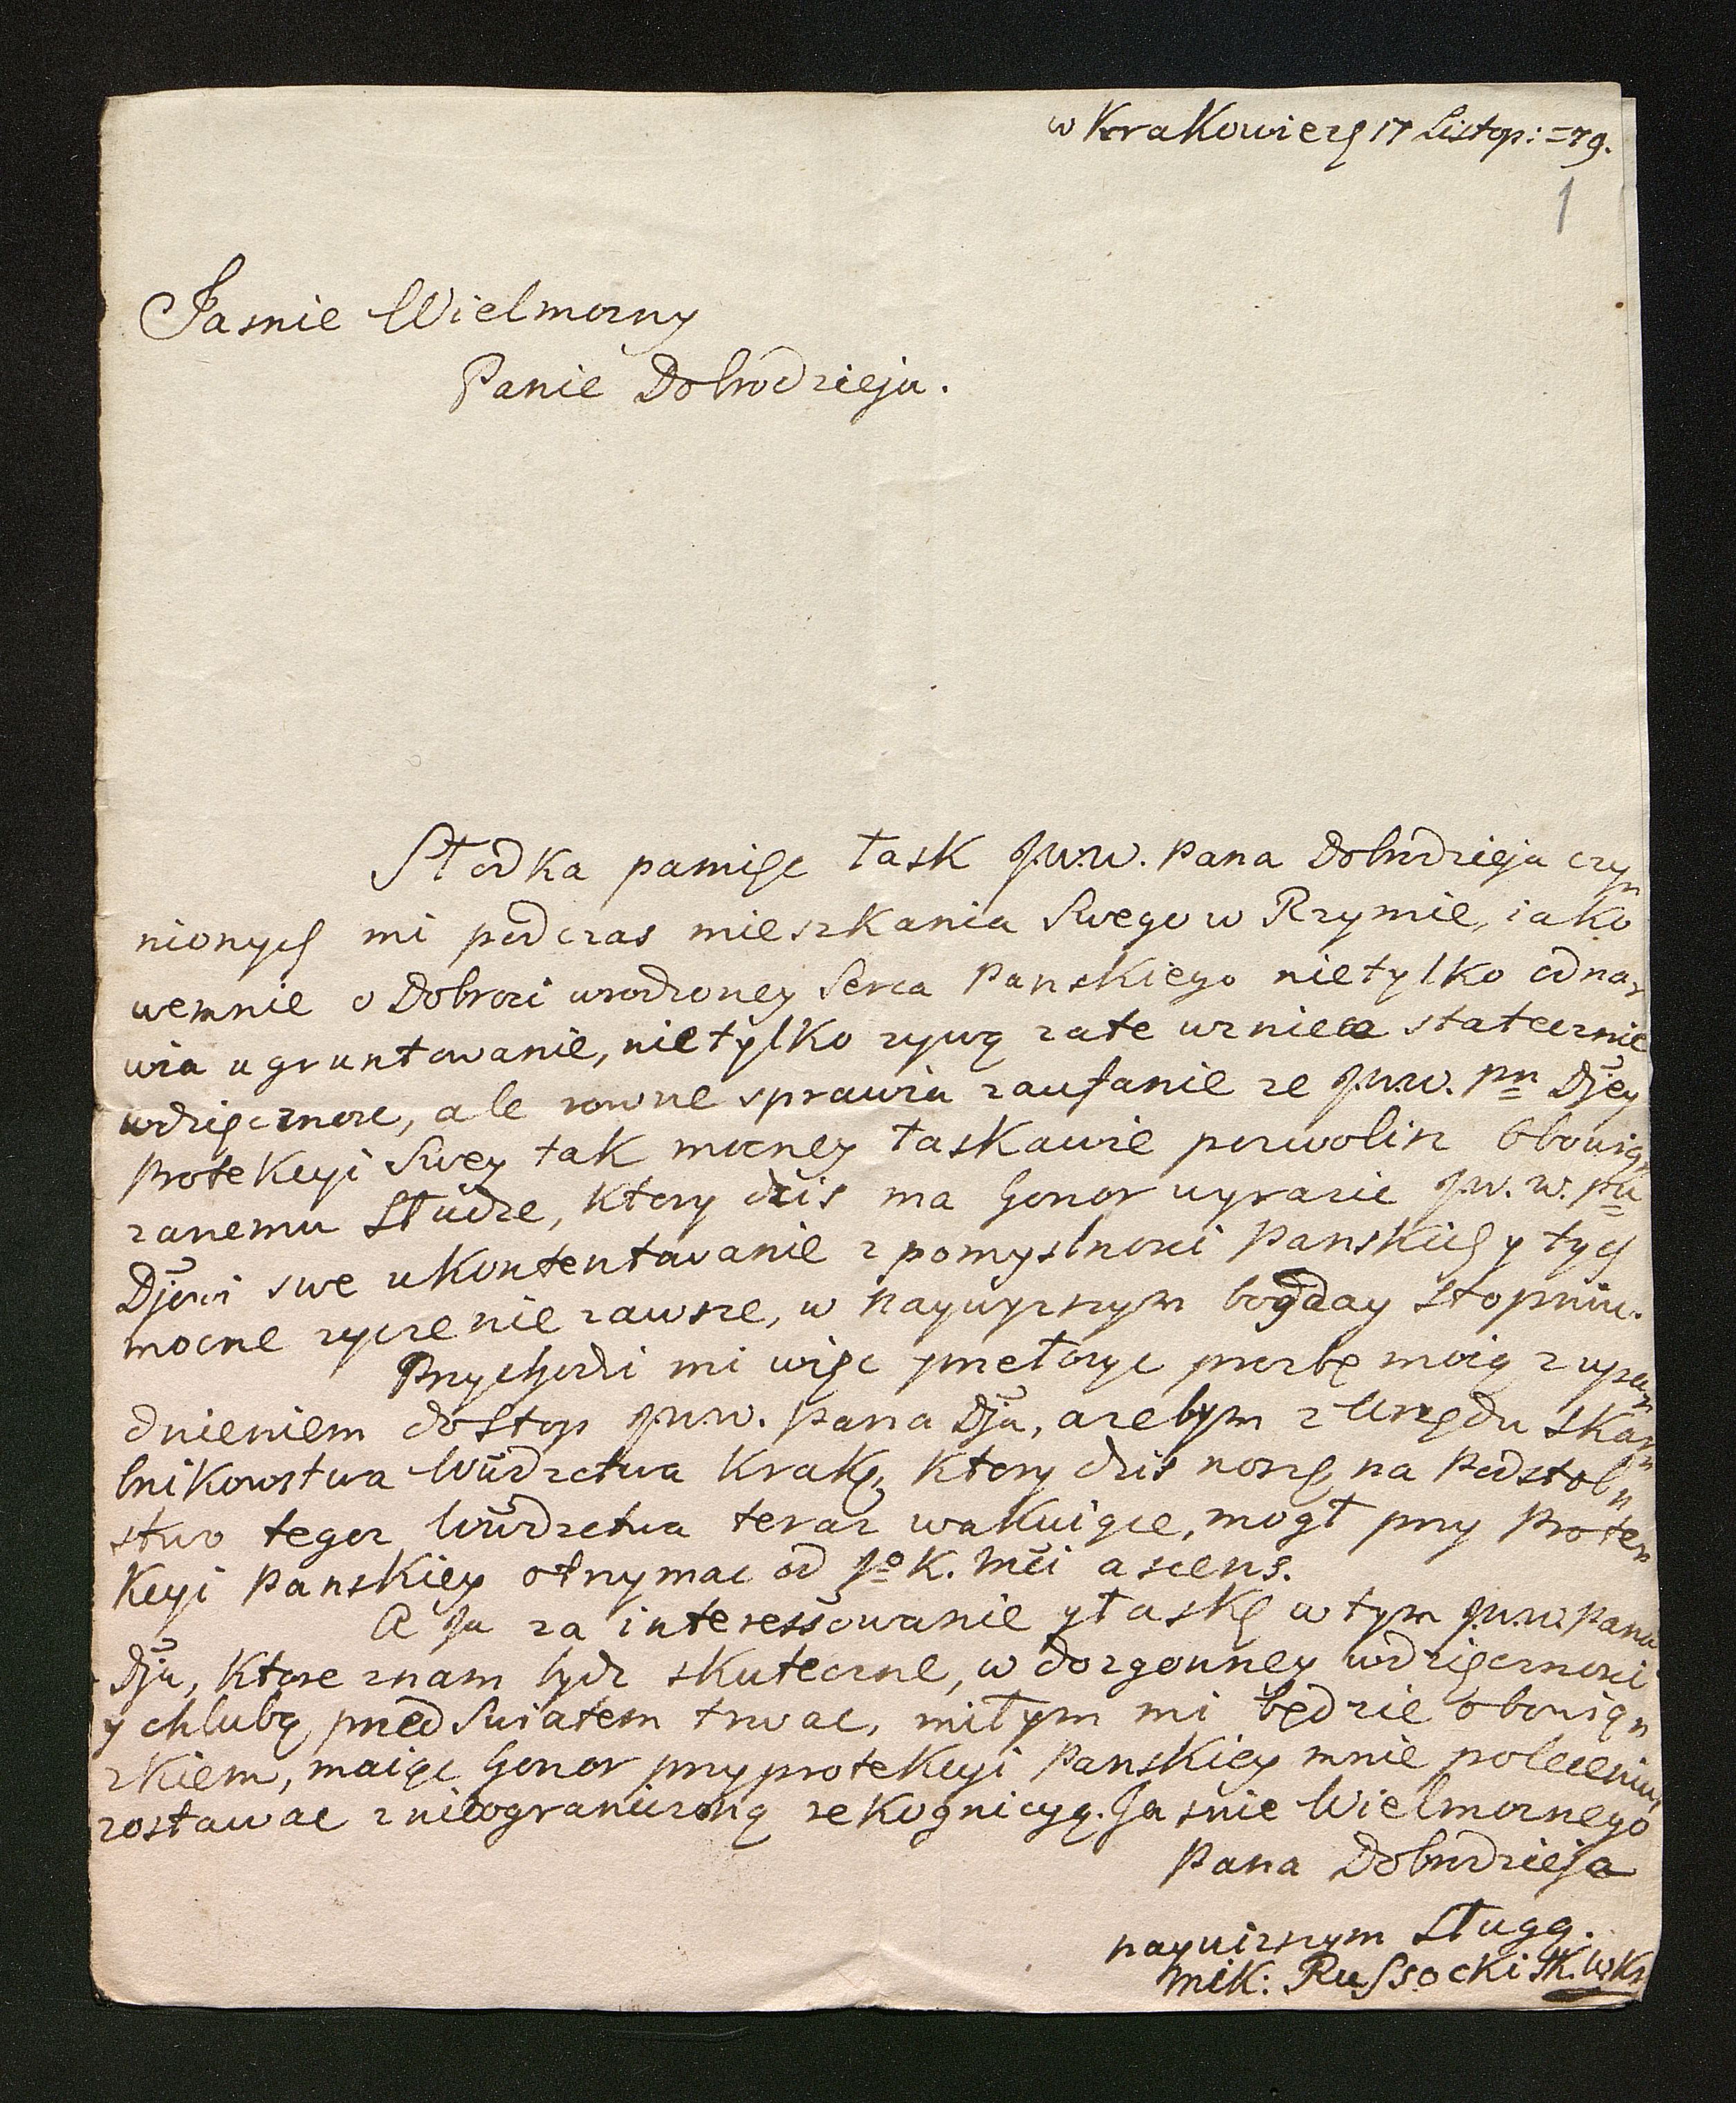 w Krakowie 17 Listop: =79.
1
Jasnie Wielmozny
Panie Dobrodzieju.
Słodka pamięc łask JW.W. Pana Dobrodzieja czy„
nionych mi podczas mieszkania Swego w Rzymie, iako
wemnie o Dobroci wrodzoney Serca Panskiego nietylko odna„
wia ugruntowanie, nietylko zywą zate wznieca statecznie
wdzięcznosc, ale rowne sprawia zaufanie ze JW.W. Pn Djey
Protekcyi Swey tak mocney łaskawie pozwolisz obowią„
zanemu Słudze, ktory dzis ma honor wyrazic JW.W. Pu
Djowi swe ukontentowanie z pomyslnosci Panskich y tych
mocne zyczenie zawsze, w naywyzszym bogday stopniu.
Przychodzi mi więc przełozyc prozbę moię z upa„
dnieniem do stop JW.W. Pana Dja, azebym z Urzędu Skar„
bnikowstwa Wüdzctwa Krakg, ktory dzis noszę na Podstol„
stwo tegoz Wüdzctwa teraz wakuiące, mogł przy Prote„
kcyi Panskiey otrzymac od Jo K. Mci ascens.
A Ja za interessowanie y łaskę w tym JW.W. Pana
Dja, ktore znam bydz skuteczne, w dozgonney wdzięcznosci
y chlubą przed Swiatem trwac, miłym mi będzie obowią„
zkiem, maiąc honor przy protekcyi Panskiey mnie poleceniu
zostawac z nieograniczoną rekognicyą. Jasnie Wielmoznego
Pana Dobrodzieja
naywizszym Sługą.
Mik: Russocki Sk. W. Kr